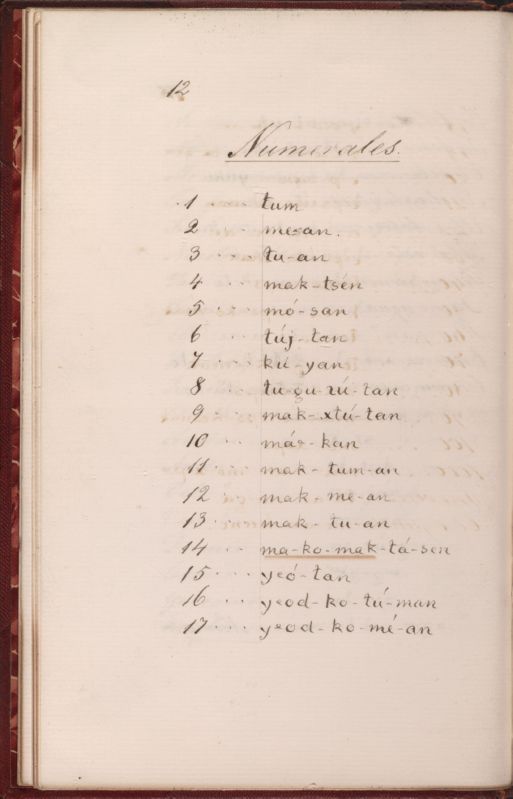 12
Numerales.
1 .... tum
2 ... me-an.
3 .... tu-an
4 .... mak-tsén
5 .... mó-san
6 .... túj-tan
7 .... kú-yan
8 .... tu-çu-xú-tan
9 .... mak-xtú-tan
10 ... más-kan
11 .... mak-tum-an
12 .... mak-me-an
13 .... mak-tu-an
14 ... ma-ko-mak-tá-sen
15 .... yeó-tan
16 .... yeod-ko-tú-man
17 .... yeod-ko-mé-an